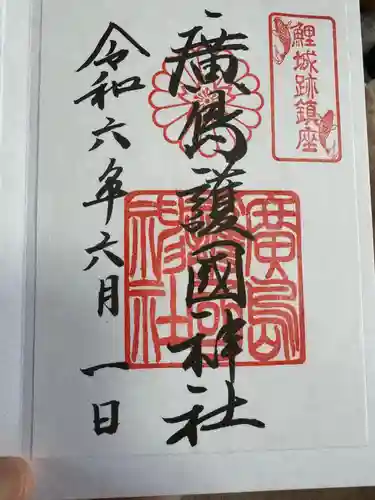 鯉城跡鎮座
廣島護國神社
廣島護國神社
令和六年六月一日